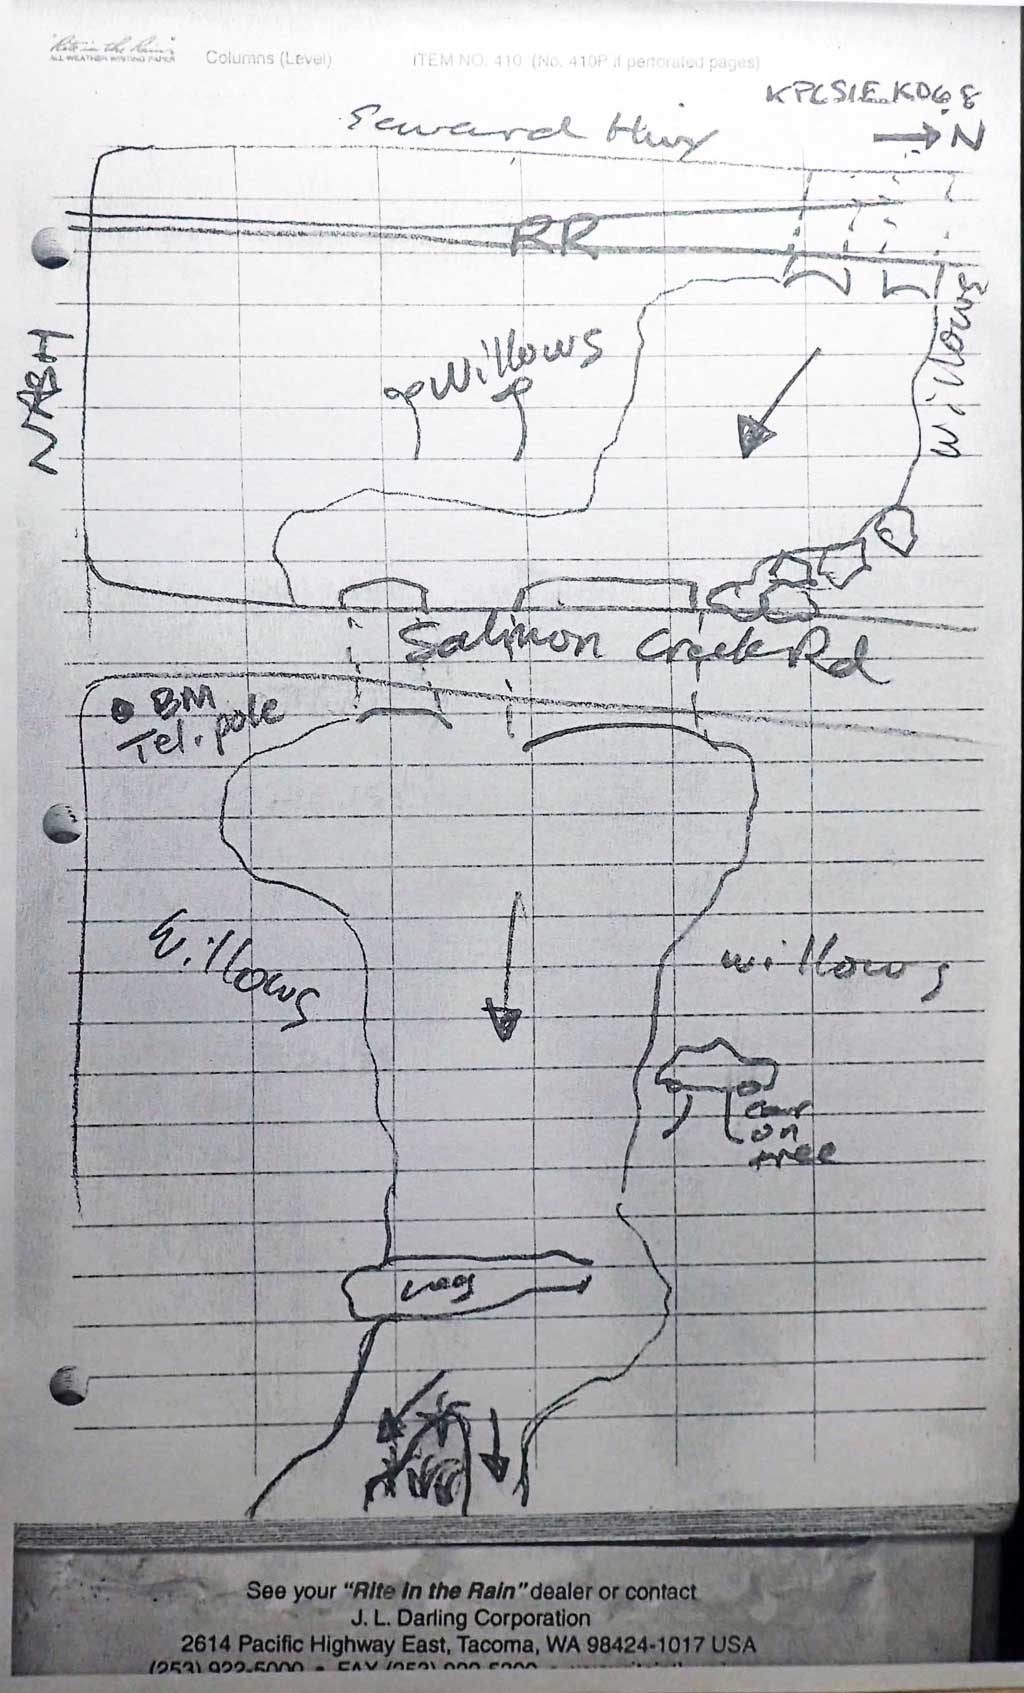 "Rite in the Rain"
ALL-WEATHER WRITING PAPER
Columns (Level)
ITEM NO. 410 (No. 410P if perforated pages)
Seward Hwy
N
RR
Willows
Willows
NASH
Salmon Creek Rd
BM
Tel. pole
Willows
willows
car
on
tree
See your "Rite in the Rain" dealer or contact
J. L. Darling Corporation
2614 Pacific Highway East, Tacoma, WA 98424-1017 USA